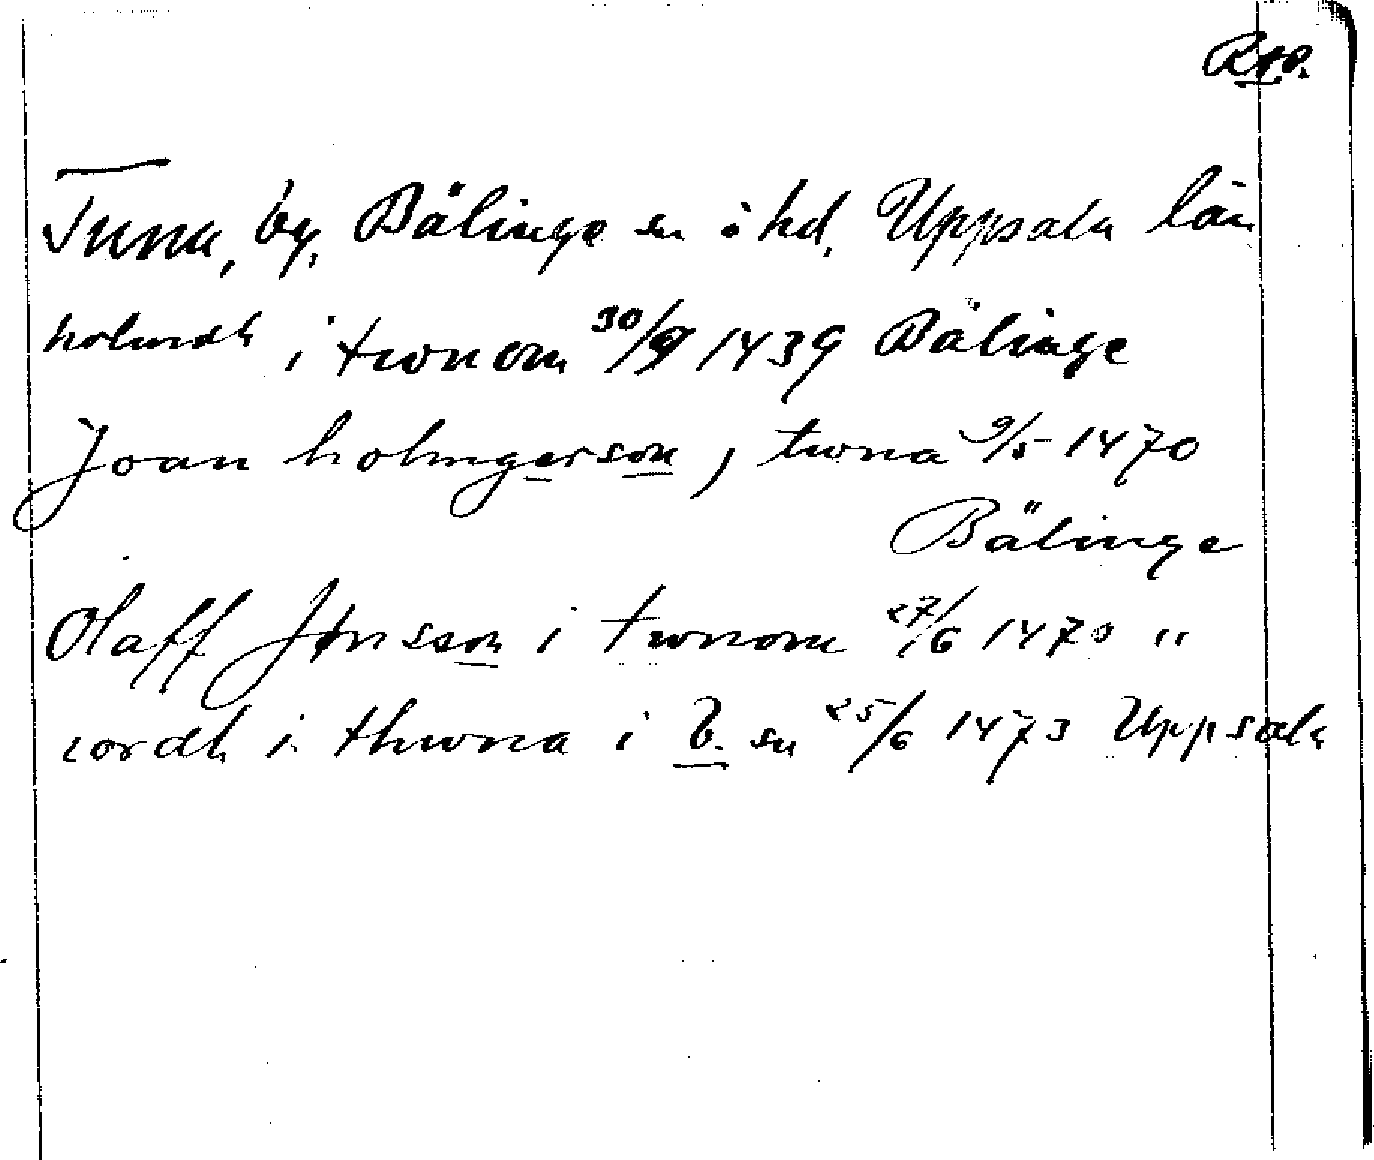 Rep.
Tuna, by, Bälinge sn o hd, Uppsala län
i twnom 30/9 1439 Bälinge
Joan holmgerson, twna 9/5 1470
Bälinge
Olaff Jönsson i twnom 27/6 1470 "
iordh i thwna i B. sn 25/6 1473 Uppsala